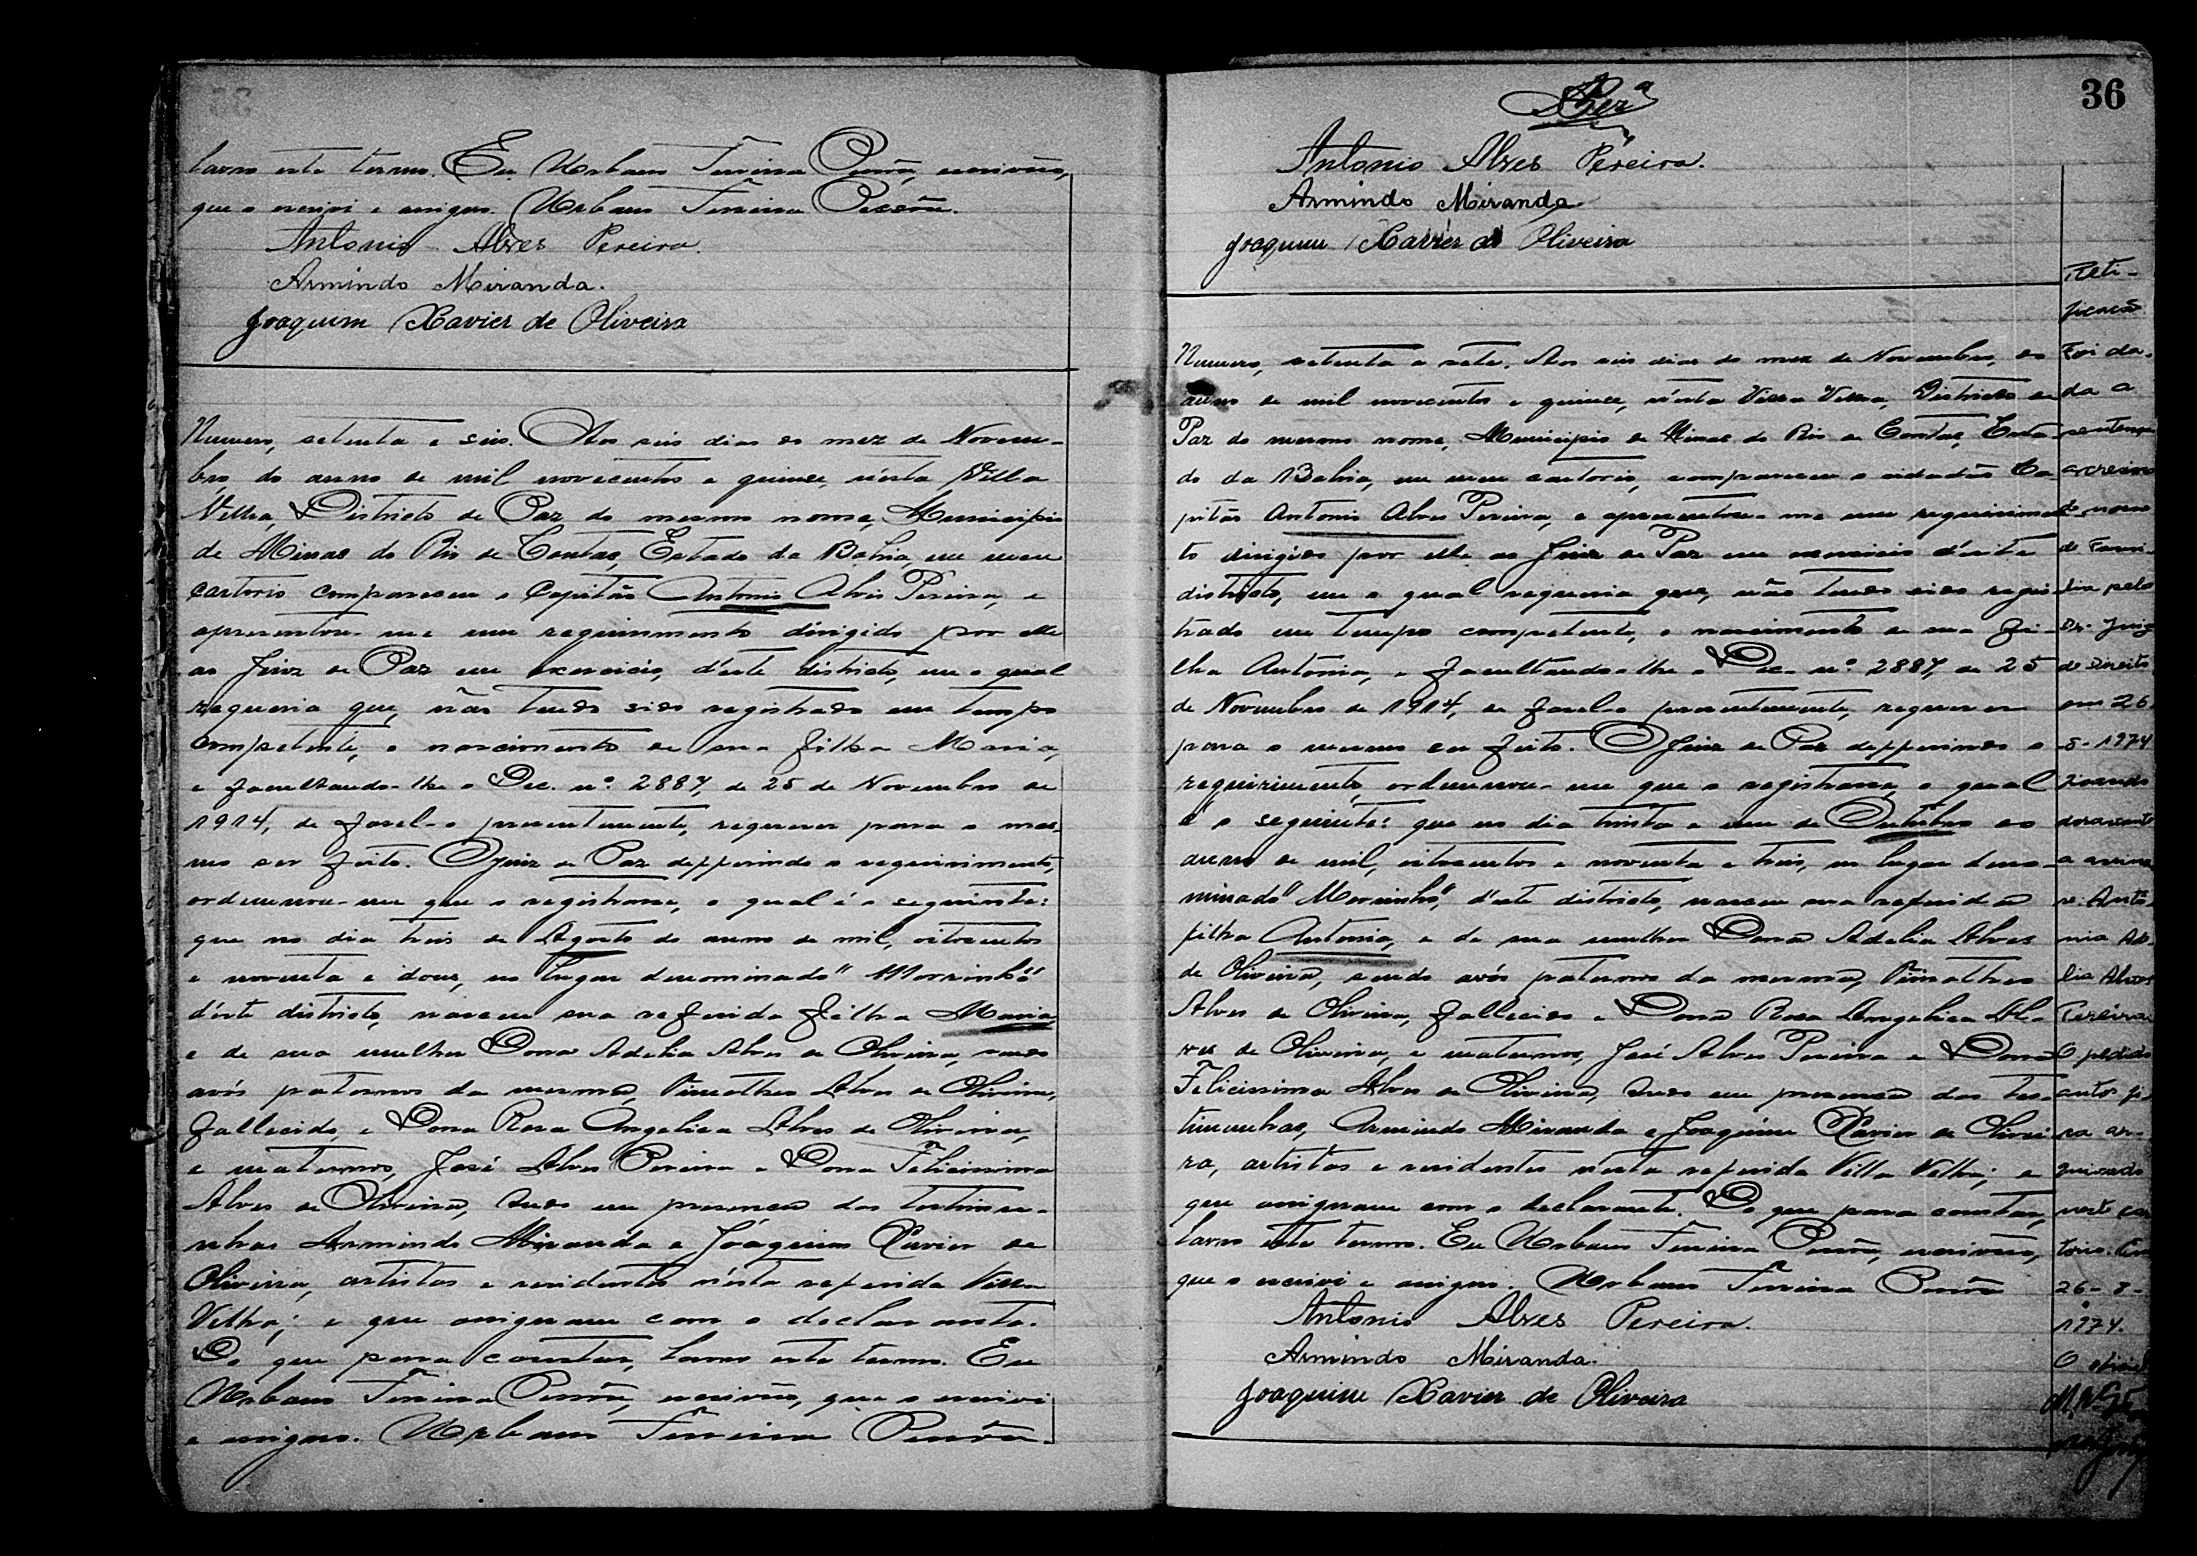 lavro este termo. Eu Urbano Ferreira Pessôa, escrivão,
que o escrevi e assigno. Urbano Ferreira Pessôa.
Antonio Alves Pereira.
Armindo Miranda.
Joaquim Xavier de Oliveira
Numero, setenta e seis. Aos seis dias do mez de Novem-
bro do anno de mil novecentos e quinze, n'esta Villa
Velha, Districto de Paz do mesmo nome, Municipio
de Minas do Rio de Contas, Estado da Bahia, em meu
cartorio compareceu o Capitão Antonio Alves Pereira, e
apresentou-me um requerimento dirigido por elle
ao Juiz de Paz em exercicio, d'este districto, em o qual
requeria que, não tendo sido registrado em tempo
competente, o nascimento de sua filha Maria,
e facultando-lhe o Dec. nº. 2887, de 25 de Novembro de
1914, de fasel-o presentemente, requerer para o mes-
mo ser feito. O Juiz de Paz defferindo o requirimento,
ordennou-me que o registrasse, o qual é o seguinte:
que no dia tres de Agosto do anno de mil, oitocentos
e noventa e dous, no lugar denominado "Morrinho"
d'este districto, nasceu sua referida filha Maria
e de sua mulher Dona Adelia Alves de Oliveira, sendo
avós paternos da mesma, Timotheo Alves de Oliveira,
fallecido, e Dona Rosa Angelica Alves de Oliveira,
e maternos, José Alves Pereira e Dona Felicissima
Alves de Oliveira, tudo em presença das testimu-
nhas Armindo Miranda e Joaquim Xavier de
Oliveira, artistas e residentes n'esta referida Villa
Velha; e que assignam com o declarante.
Do que para constar, lavro este termo. Eu
Urbano Ferreira Pessôa, escrivão, que o escrevi
e assigno. Urbano Ferreira Pessôa.
36
Antonio Alves Pereira.
Armindo Miranda
Joaquim Xavier de Oliveira
Numero, setenta e sete. Aos seis dias do mez de Novembro, do
anno de mil novecentos e quinze, n'esta Villa Velha, Districto de
Paz do mesmo nome, Municipio de Minas do Rio de Contas, Esta-
do da Bahia, em meu cartorio, compareceu o cidadão Ca-
pitão Antonio Alves Pereira, e apresentou-me um requirimen-
to dirigido por elle ao Juiz de Paz em exercicio d'este
districto, em o qual requeria que, não tendo sido regis-
trado em tempo competente, o nascimento de sua fi-
lha Antonia, e facultando-lhe o Dec. nº. 2887, de 25
de Novembro de 1914, de fasel-o presentemente, requerer
para o mesmo ser feito. O Juiz de Paz defferindo o
requirimento, ordennou-me que o registrasse, o qual
é o seguinte: que no dia trinta e um de Outubro do
anno de mil, oitocentos e noventa e tres, no lugar deno-
minado "Morrinho", d'este districto, nasceu sua referida
filha Antonia, e de sua mulher Dona Adelia Alves
de Oliveira, sendo avós paternos da mesma, Timotheo
Alves de Oliveira, fallecido e Dona Rosa Angelica Al-
ves de Oliveira, e maternos, José Alves Pereira e Dona
Felicissima Alves de Oliveira, tudo em presença das tes-
timunhas, Armindo Miranda e Joaquim Xavier de Olivei-
ra, artistas e residentes n'esta referida Villa Velha; e
que assignam com o declarante. Do que para constar,
lavro este termo. Eu Urbano Ferreira Pessôa, escrivão,
que o escrevi e assigno. Urbano Ferreira Pessôa
Antonio Alves Pereira.
Armindo Miranda.
Joaquim Xavier de Oliveira
Reti-
ficação
Foi da-
da a
sentença
acresimo
nome
de fami-
lia pelo
Dr. Juiz
de Direito
em 26
8-1974
ficando
doravante
a assinar
se: Antô-
nia Adé-
lia Alves
Pereira
O pedido
autos fi-
ca ar-
quivado
neste car-
torio. Em
26-8-
1974.
O oficial